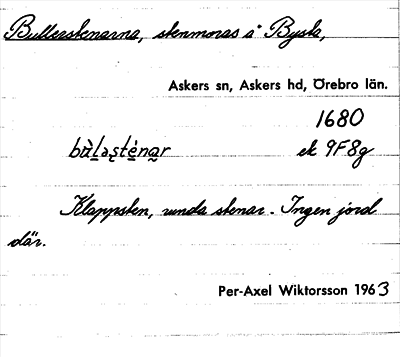 Bullerstenarna, stenmoras å Bysta,
Askers sn, Askers hd, Örebro län.
1680
bùl̲əʂtè̲na̲r ek 9F8g
Klappsten, runda stenar. Ingen jord
där.
Per-Axel Wiktorsson 1963